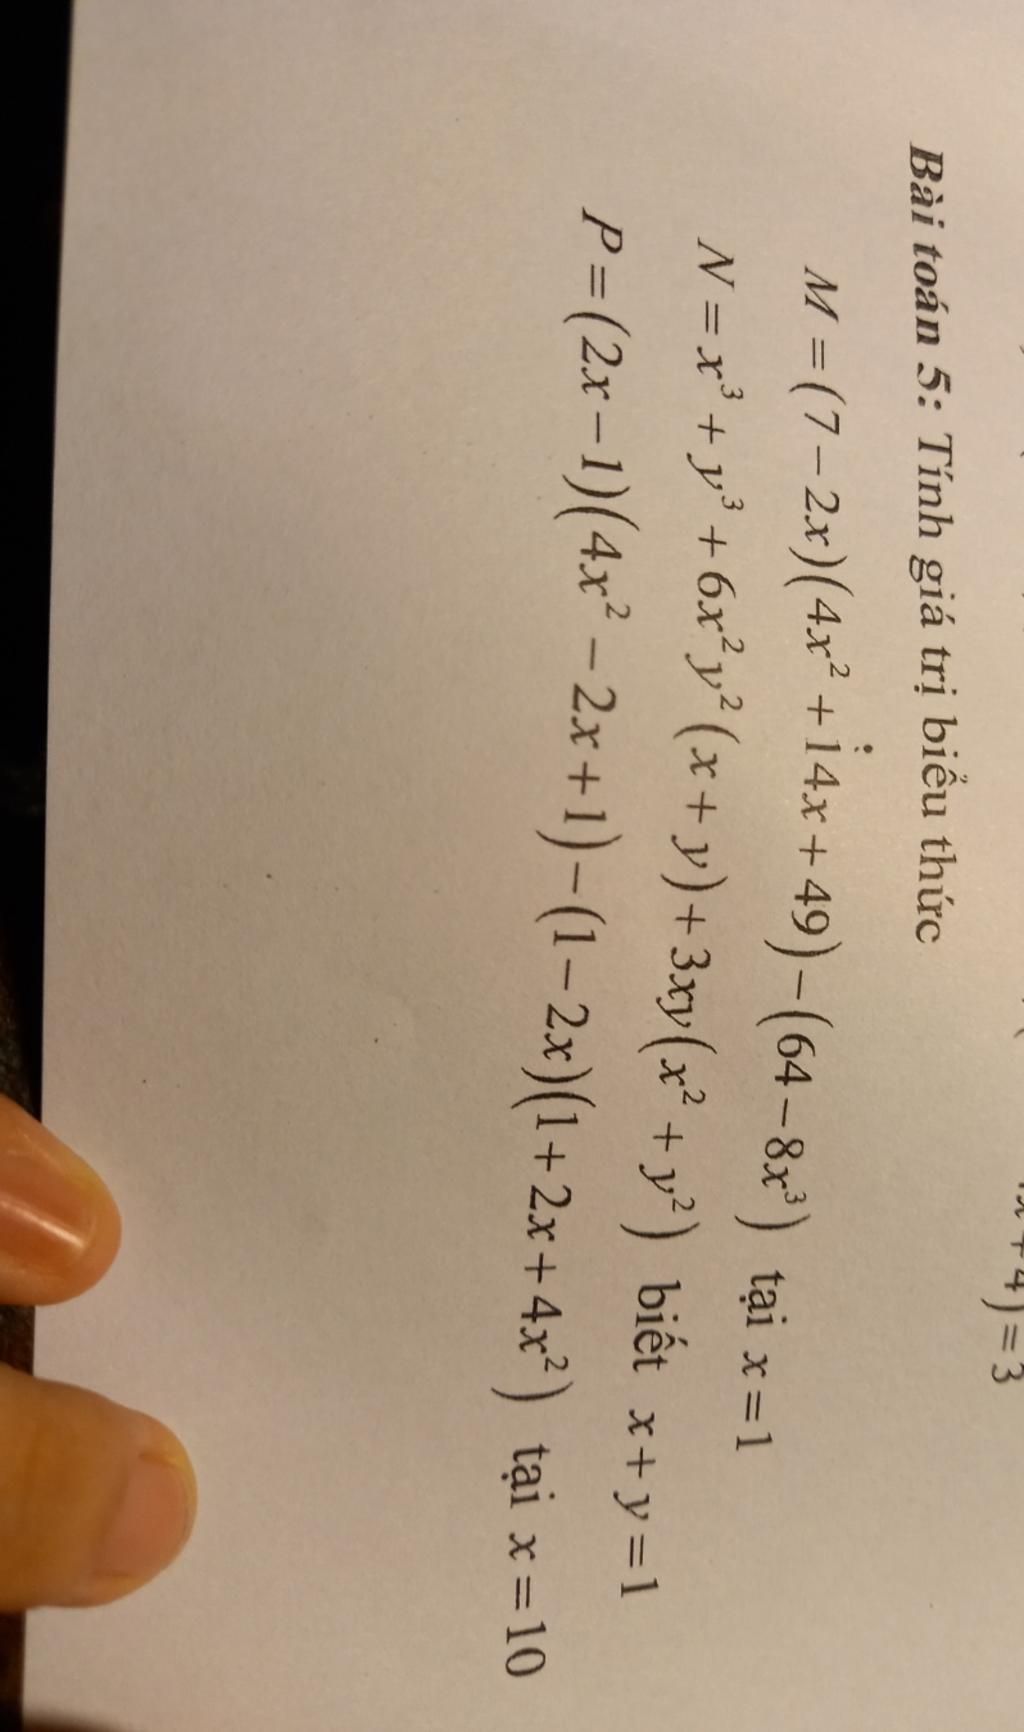 x + 4) = 3
Bài toán 5: Tính giá trị biểu thức
M = (7 − 2x)(4x² + 14x + 49) − (64 − 8x³) tại x = 1
N = x³ + y³ + 6x²y²(x + y) + 3xy(x² + y²) biết x + y = 1
P = (2x − 1)(4x² − 2x + 1) − (1 − 2x)(1 + 2x + 4x²) tại x = 10